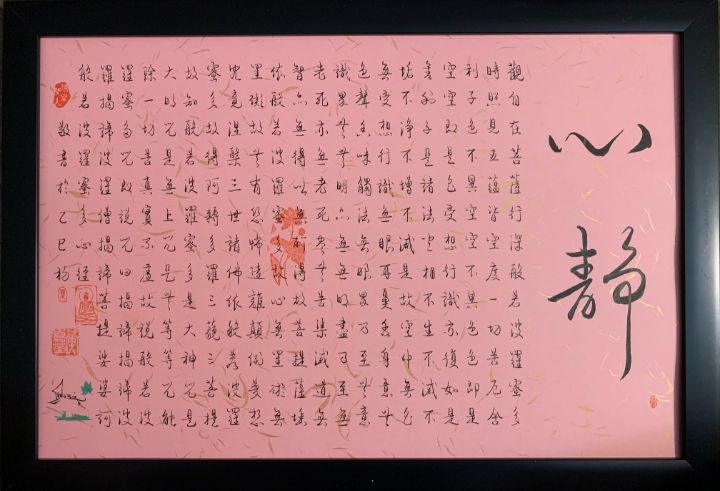 心靜
觀自在菩薩行深般若波羅蜜多
時照見五蘊皆空度一切苦厄舍
利子色不異空空不異色色即是
空空即是色受想行識亦復如是
舍利子是諸法空相不生不滅不
垢不淨不增不減是故空中無色
無受想行識無眼耳鼻舌身意無
色聲香味觸法無眼界乃至無意
識界無無明亦無無明盡乃至無
老死亦無老死盡無苦集滅道無
智亦無得以無所得故菩提薩埵
依般若波羅蜜多故心無罣礙無
罣礙故無有恐怖遠離顛倒夢想
究竟涅槃三世諸佛依般若波羅
蜜多故得阿耨多羅三藐三菩提
故知般若波羅蜜多是大神咒是
大明咒是無上咒是無等等咒能
除一切苦真實不虛故說般若波
羅蜜多咒即說咒曰揭諦揭諦波
羅揭諦波羅僧揭諦菩提娑婆訶
般若波羅蜜多心經
敬書於乙巳